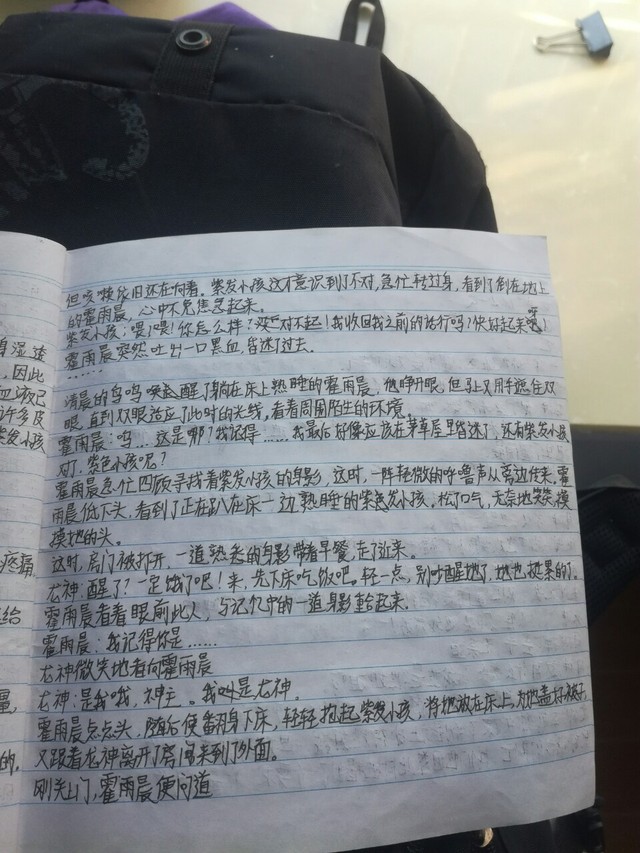 身湿透
,因此
血液已
许多皮
紫发小孩
疼痛
给
量,
的,
但咳嗽依旧还在向着。紫发小孩这才意识到了不对,急忙转过身,看到了倒在地上
的霍雨晨,心中不免焦急起来。
紫发小孩:喂!喂!你怎么样?对不起!我收回我之前的话行吗?快好起来吧!
霍雨晨突然吐出一口黑血,昏迷了过去。
……
清晨的鸟鸣唤醒了躺在床上熟睡的霍雨晨,他睁开眼,但马上又用手遮住双
眼,直到双眼适应了此时的光线,看着周围陌生的环境。
霍雨晨:呜…这是哪?我记得……我最后好像应该在茅草屋里昏迷了,还有紫发小孩
对了,紫色小孩呢?
霍雨晨急忙四顾寻找着紫发小孩的身影,这时,一阵轻微的呼噜声从旁边传来,霍
雨晨低下头,看到了正在趴在床一边熟睡的紫发小孩,松了口气,无奈地笑笑,摸
摸她的头。
这时,房门被打开,一道熟悉的身影带着早餐走了进来。
龙神:醒了?一定饿了吧!来,先下床吃饭吧。轻一点,别吵醒她了,她也挺累的了。
霍雨晨看着眼前此人,与记忆中的一道身影重合起来。
霍雨晨:我记得你是……
龙神微笑地看向霍雨晨
龙神:是我哦,神王。我叫是龙神。
霍雨晨点点头,随后便翻身下床,轻轻抱起紫发小孩,将她放在床上,为她盖好被子,
又跟着龙神离开了房间来到了外面。
刚关上门,霍雨晨便问道